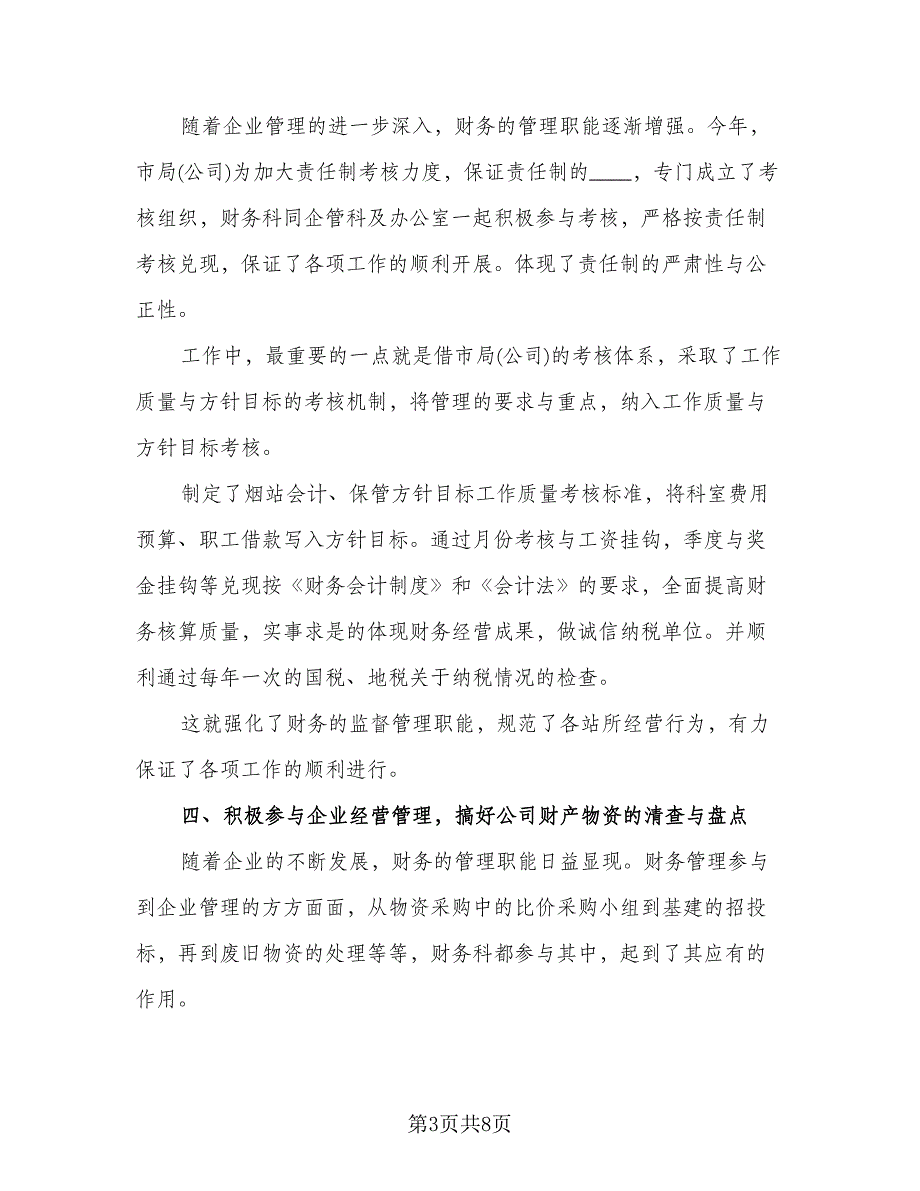 随着企业管理的进一步深入，财务的管理职能逐渐增强。今年，
市局(公司)为加大责任制考核力度，保证责任制的____，专门成立了考
核组织，财务科同企管科及办公室一起积极参与考核，严格按责任制
考核兑现，保证了各项工作的顺利开展。体现了责任制的严肃性与公
正性。
工作中，最重要的一点就是借市局(公司)的考核体系，采取了工作
质量与方针目标的考核机制，将管理的要求与重点，纳入工作质量与
方针目标考核。
制定了烟站会计、保管方针目标工作质量考核标准，将科室费用
预算、职工借款写入方针目标。通过月份考核与工资挂钩，季度与奖
金挂钩等兑现按《财务会计制度》和《会计法》的要求，全面提高财
务核算质量，实事求是的体现财务经营成果，做诚信纳税单位。并顺
利通过每年一次的国税、地税关于纳税情况的检查。
这就强化了财务的监督管理职能，规范了各站所经营行为，有力
保证了各项工作的顺利进行。
四、积极参与企业经营管理，搞好公司财产物资的清查与盘点
随着企业的不断发展，财务的管理职能日益显现。财务管理参与
到企业管理的方方面面，从物资采购中的比价采购小组到基建的招投
标，再到废旧物资的处理等等，财务科都参与其中，起到了其应有的
作用。
第3页共8页